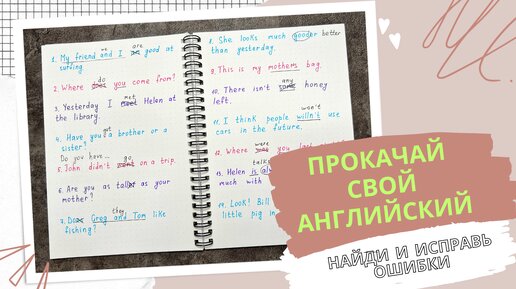 we are
1. My friend and I good at
surfing.
do
2. Where you come from?
met
3. Yesterday I Helen at
the library.
got
4. Have you a brother or a
sister?
Do you have...
go
5. John didn't went on a trip.
6. Are you as tall as your
mother?
they
7. Do Greg and Tom like
fishing?
8. She looks much gooder better
than yesterday.
9. This is my mothers bag.
any
10. There isn't some honey
left.
won't
11. I think people willn't use
cars in the future.
were
12. Where you
talk
13. Helen is al
much with
14. Look! Bill
little pig in
ПРОКАЧАЙ
СВОЙ
АНГЛИЙСКИЙ
НАЙДИ И ИСПРАВЬ
ОШИБКИ